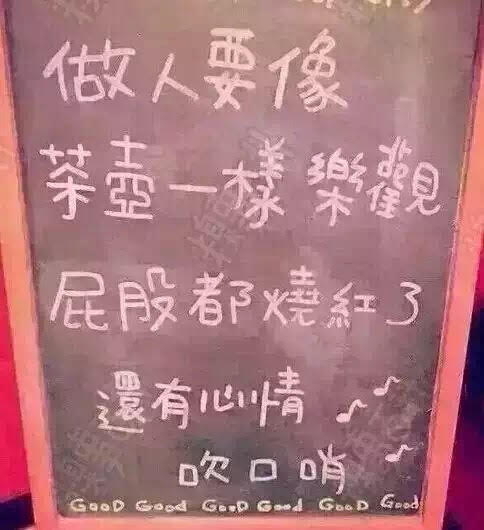 做人要像
茶壺一樣 樂觀
屁股都燒紅了
還有心情
吹口哨
GooD Good GooD Good GooD Good